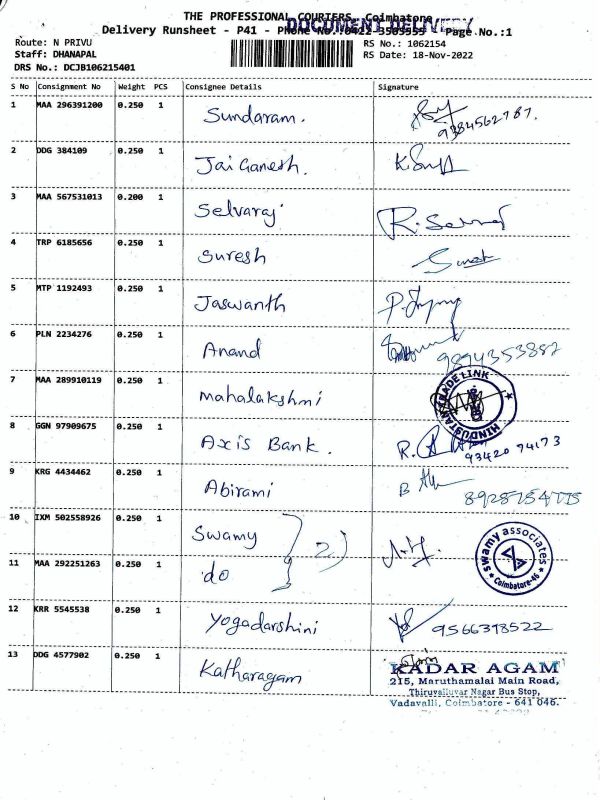 THE PROFESSIONAL COURIERS, Coimbatore
DOCUMENT DELIVERY
Delivery Runsheet - P41 - Phone No.:0422-3505555 - Page No.:1
Route: N PRIVU
RS No.: 1062154
Staff: DHANAPAL
RS Date: 18-Nov-2022
DRS No.: DCJB106215401
S No Consignment No Weight PCS Consignee Details Signature
1 MAA 296391200 0.250 1 Sundaram.
9384562787.
2 DDG 384109 0.250 1 Jai Ganesh.
3 MAA 567531013 0.200 1 Selvaraj
4 TRP 6185656 0.250 1 Suresh Suresh
5 MTP 1192493 0.250 1 Jaswanth
6 PLN 2234276 0.250 1 Anand 9894353882
7 MAA 289910119 0.250 1 Mahalakshmi
HINDUSTAN TRADE LINK
8 GGN 97909675 0.250 1 Axis Bank. R.
93420 74173
9 KRG 4434462 0.250 1 Abirami B
10 IXM 502558926 0.250 1 Swamy 2)
swamy associates
Coimbatore-46
11 MAA 292251263 0.250 1 do
12 KRR 5545538 0.250 1 Yogadarshini 9566398522
13 DDG 4577902 0.250 1 Katharagam
KADAR AGAM
215, Maruthamalai Main Road,
Thiruvalluvar Nagar Bus Stop,
Vadavalli, Coimbatore - 641 046.